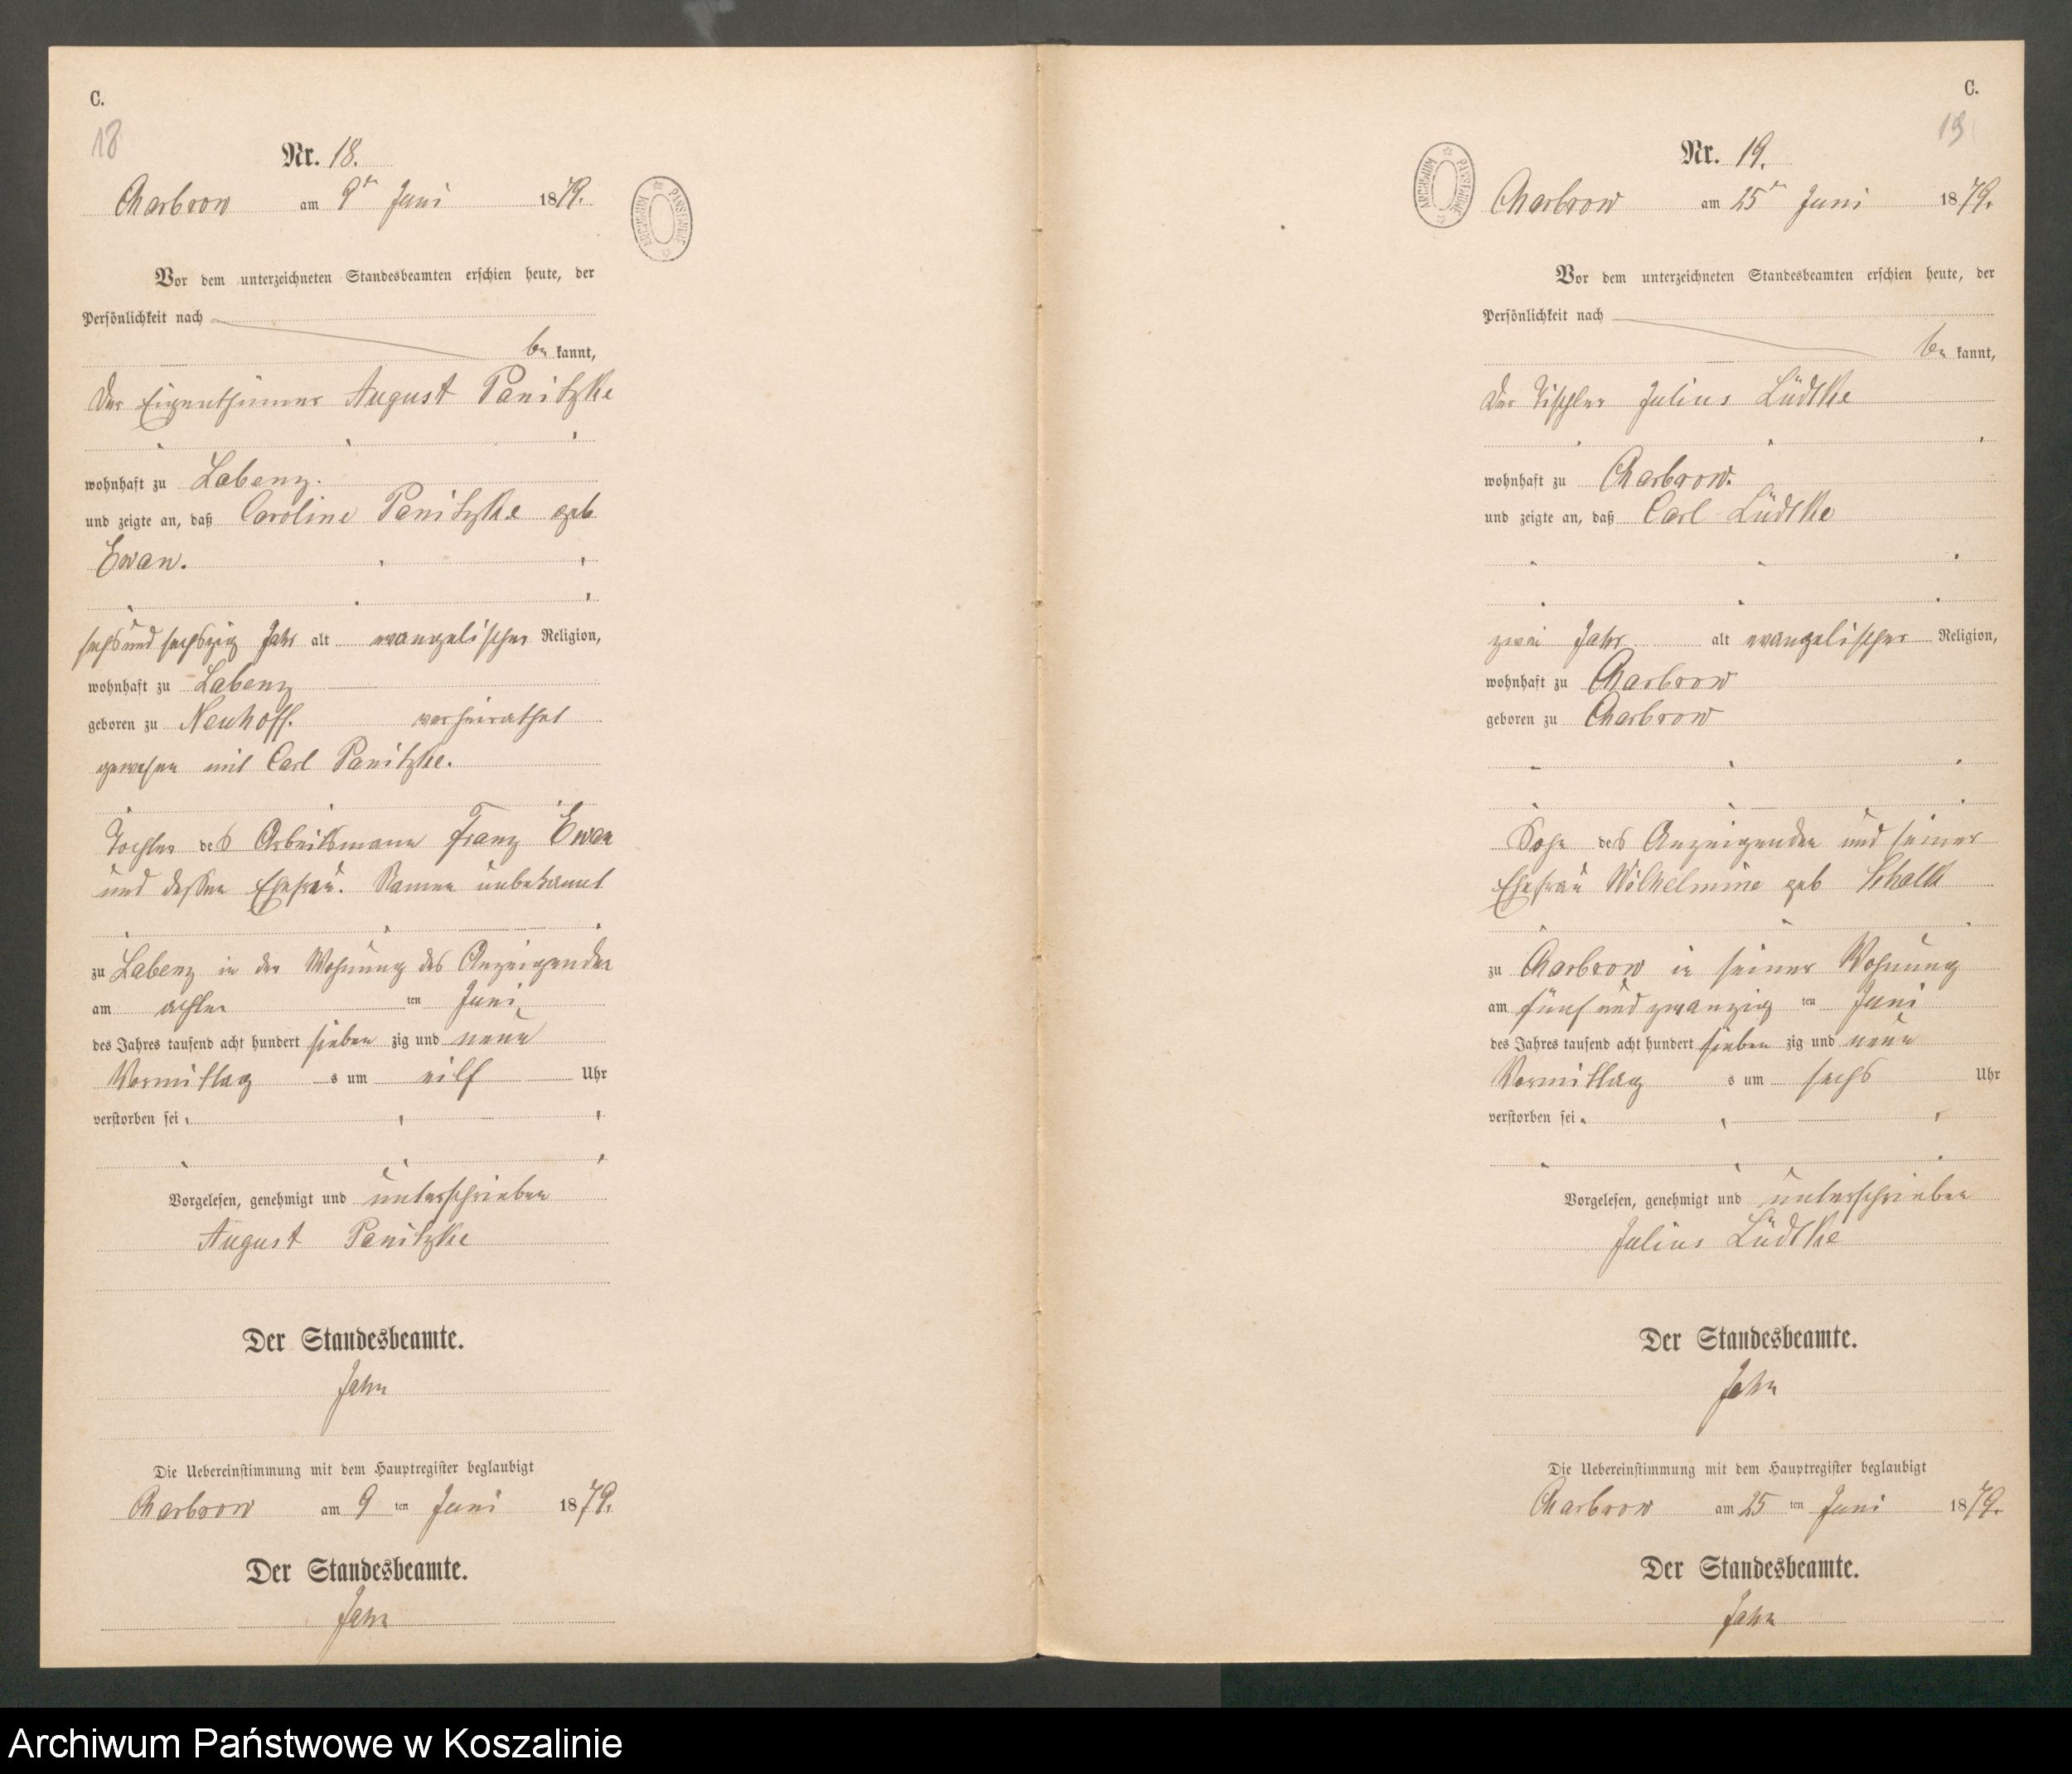 C.
18
Nr. 18.
Charbrow am 9ten Juni 1879.
ARCHIWUM PAŃSTWOWE
Vor dem unterzeichneten Standesbeamten erschien heute, der
Persönlichkeit nach
be kannt,
der Eigenthümer August Panitzke
wohnhaft zu Labenz.
und zeigte an, daß Caroline Panitzke geb
Ewan.
sechsundsechszig Jahr alt evangelischer Religion,
wohnhaft zu Labenz
geboren zu Neuhoff. verheirathet
gewesen mit Carl Panitzke.
Tochter des Arbeitsmann Franz Ewan
und dessen Ehefrau. Namen unbekannt
zu Labenz in der Wohnung des Anzeigenden
am achten ten Juni
des Jahres tausend acht hundert sieben zig und neun
Vormittag s um eilf Uhr
verstorben sei
Vorgelesen, genehmigt und unterschrieben
August Panitzke
Der Standesbeamte.
Jahn
Die Uebereinstimmung mit dem Hauptregister beglaubigt
Charbrow am 9 ten Juni 1879.
Der Standesbeamte.
Jahn
C.
19
Nr. 19.
ARCHIWUM PAŃSTWOWE
Charbrow am 25ten Juni 1879.
Vor dem unterzeichneten Standesbeamten erschien heute, der
Persönlichkeit nach
be kannt,
der Tischler Julius Lüdtke
wohnhaft zu Charbrow.
und zeigte an, daß Carl Lüdtke
zwei Jahr alt evangelischer Religion,
wohnhaft zu Charbrow
geboren zu Charbrow
Sohn des Anzeigenden und seiner
Ehefrau Wilhelmine geb Schalk
zu Charbrow in seiner Wohnung
am fünf und zwanzig ten Juni
des Jahres tausend acht hundert sieben zig und neun
Vormittag s um sechs Uhr
verstorben sei
Vorgelesen, genehmigt und unterschrieben
Julius Lüdtke
Der Standesbeamte.
Jahn
Die Uebereinstimmung mit dem Hauptregister beglaubigt
Charbrow am 25 ten Juni 1879.
Der Standesbeamte.
Jahn
Archiwum Państwowe w Koszalinie